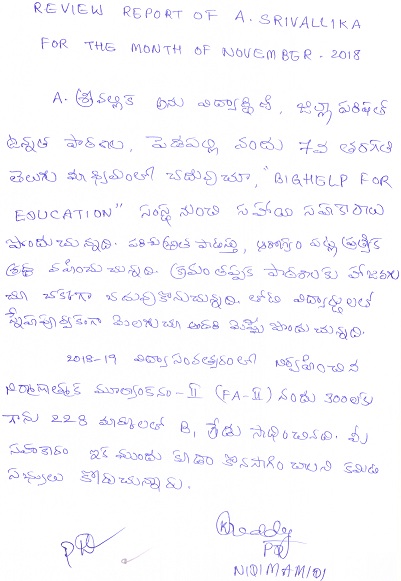 REVIEW REPORT OF A. SRIVALLIKA
FOR THE MONTH OF NOVEMBER - 2018
A. శ్రీవల్లిక అను విద్యార్థిని, జిల్లా పరిషత్
ఉన్నత పాఠశాల, పెదపల్లి నందు 7వ తరగతి
తెలుగు మాధ్యమంలో చదువుచూ, "BIGHELP FOR
EDUCATION" సంస్థ నుంచి సహాయ సహకారాలు
పొందుచున్నది. పరిశుభ్రత పాటిస్తూ, ఆరోగ్యం పట్ల ప్రత్యేక
శ్రద్ధ వహించుచున్నది. క్రమం తప్పక పాఠశాలకు హాజరగు
చూ చక్కగా చదువుకొనుచున్నది. తోటి విద్యార్థులతో
స్నేహపూర్వకంగా మెలగుచూ అందరి మెప్పు పొందుచున్నది.
2018-19 విద్యా సంవత్సరంలో నిర్వహించిన
నిర్మాణాత్మక మూల్యాంకనం-II (FA-II) నందు 300లకు
గాను 228 మార్కులతో B1 గ్రేడు సాధించినది. మీ
సహకారం ఇక ముందు కూడా కొనసాగించాలని కమిటి
సభ్యులు కోరుచున్నారు.
KReddy
NIDIMAMIDI